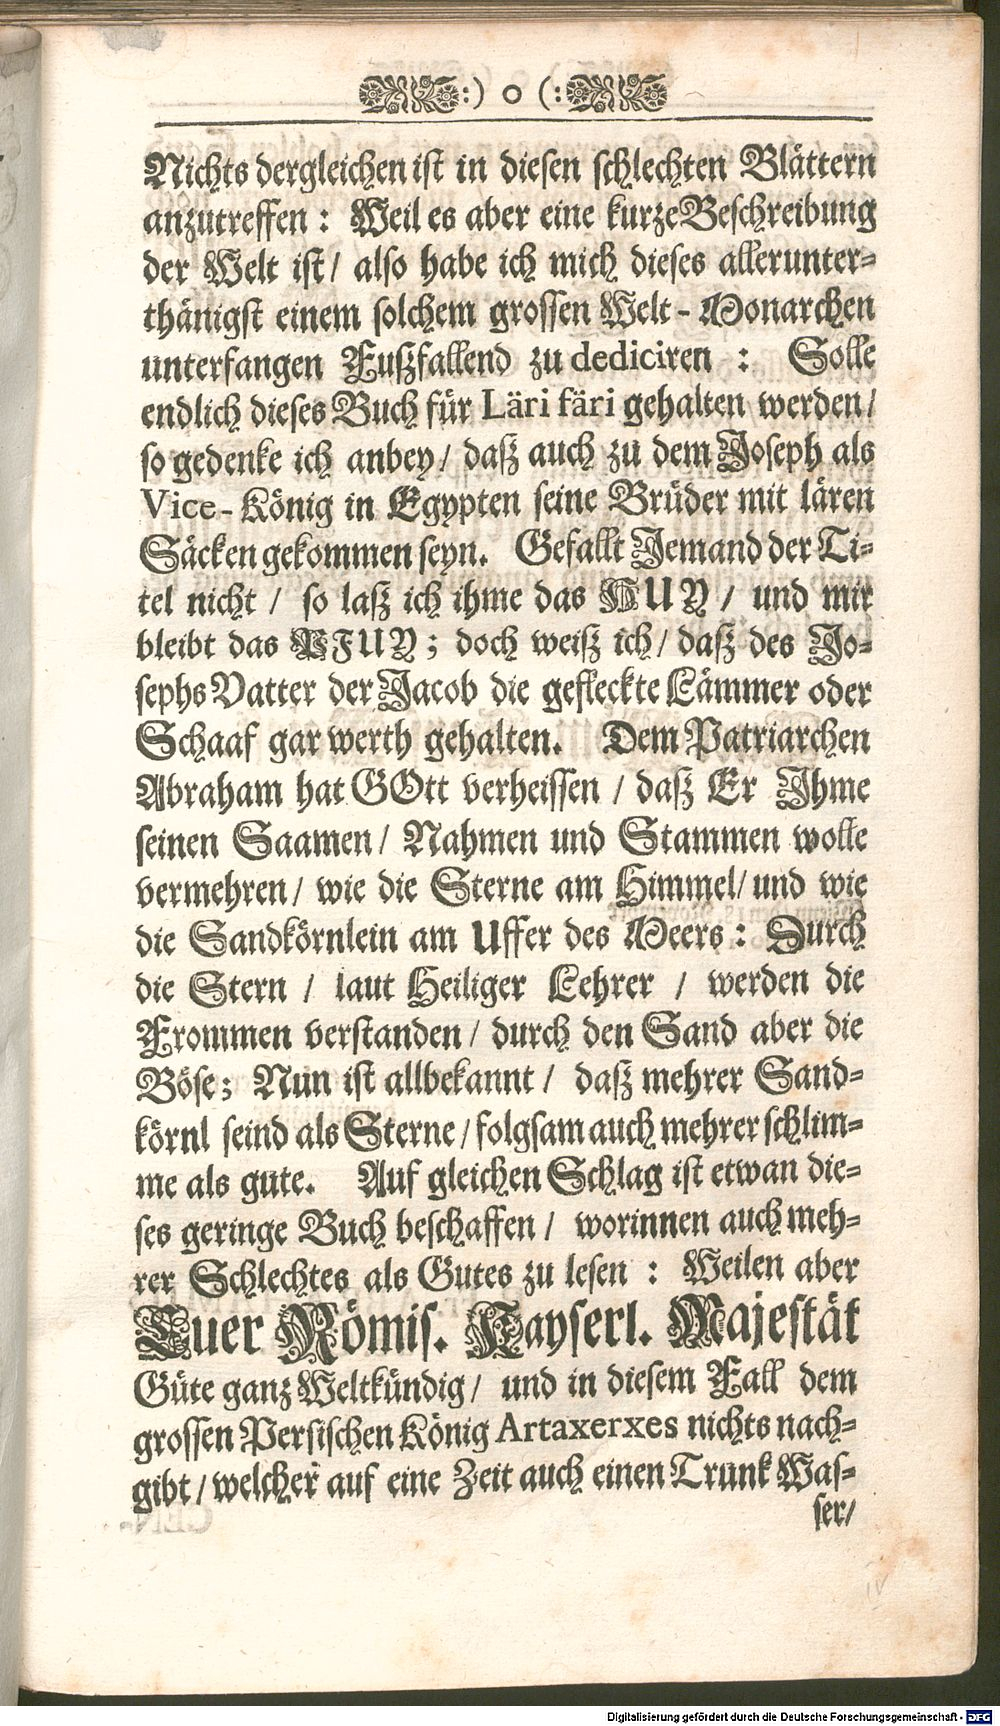 :) o (:
Nichts dergleichen ist in diesen schlechten Blättern
anzutreffen : Weil es aber eine kurze Beschreibung
der Welt ist / also habe ich mich dieses allerunter=
thänigst einem solchem grossen Welt - Monarchen
unterfangen Fußfallend zu dediciren : Solle
endlich dieses Buch für Läri färi gehalten werden /
so gedenke ich anbey / daß auch zu dem Joseph als
Vice - König in Egypten seine Brüder mit lären
Säcken gekommen seyn. Gefallt Jemand der Ti=
tel nicht / so laß ich ihme das HUY / und mir
bleibt das PFUY ; doch weiß ich / daß des Jo=
sephs Vatter der Jacob die gefleckte Lämmer oder
Schaaf gar werth gehalten. Dem Patriarchen
Abraham hat GOtt verheissen / daß Er Ihme
seinen Saamen / Nahmen und Stammen wolle
vermehren / wie die Sterne am Himmel / und wie
die Sandkörnlein am Uffer des Meers : Durch
die Stern / laut Heiliger Lehrer / werden die
Frommen verstanden / durch den Sand aber die
Böse ; Nun ist allbekannt / daß mehrer Sand=
körnl seind als Sterne / folgsam auch mehrer schlim=
me als gute. Auf gleichen Schlag ist etwan die=
ses geringe Buch beschaffen / worinnen auch meh=
rer Schlechtes als Gutes zu lesen : Weilen aber
Euer Römis. Kayserl. Majestät
Güte ganz Weltkündig / und in diesem Fall dem
grossen Persischen König Artaxerxes nichts nach=
gibt / welcher auf eine Zeit auch einen Trunk Was=
ser /
Digitalisierung gefördert durch die Deutsche Forschungsgemeinschaft - DFG